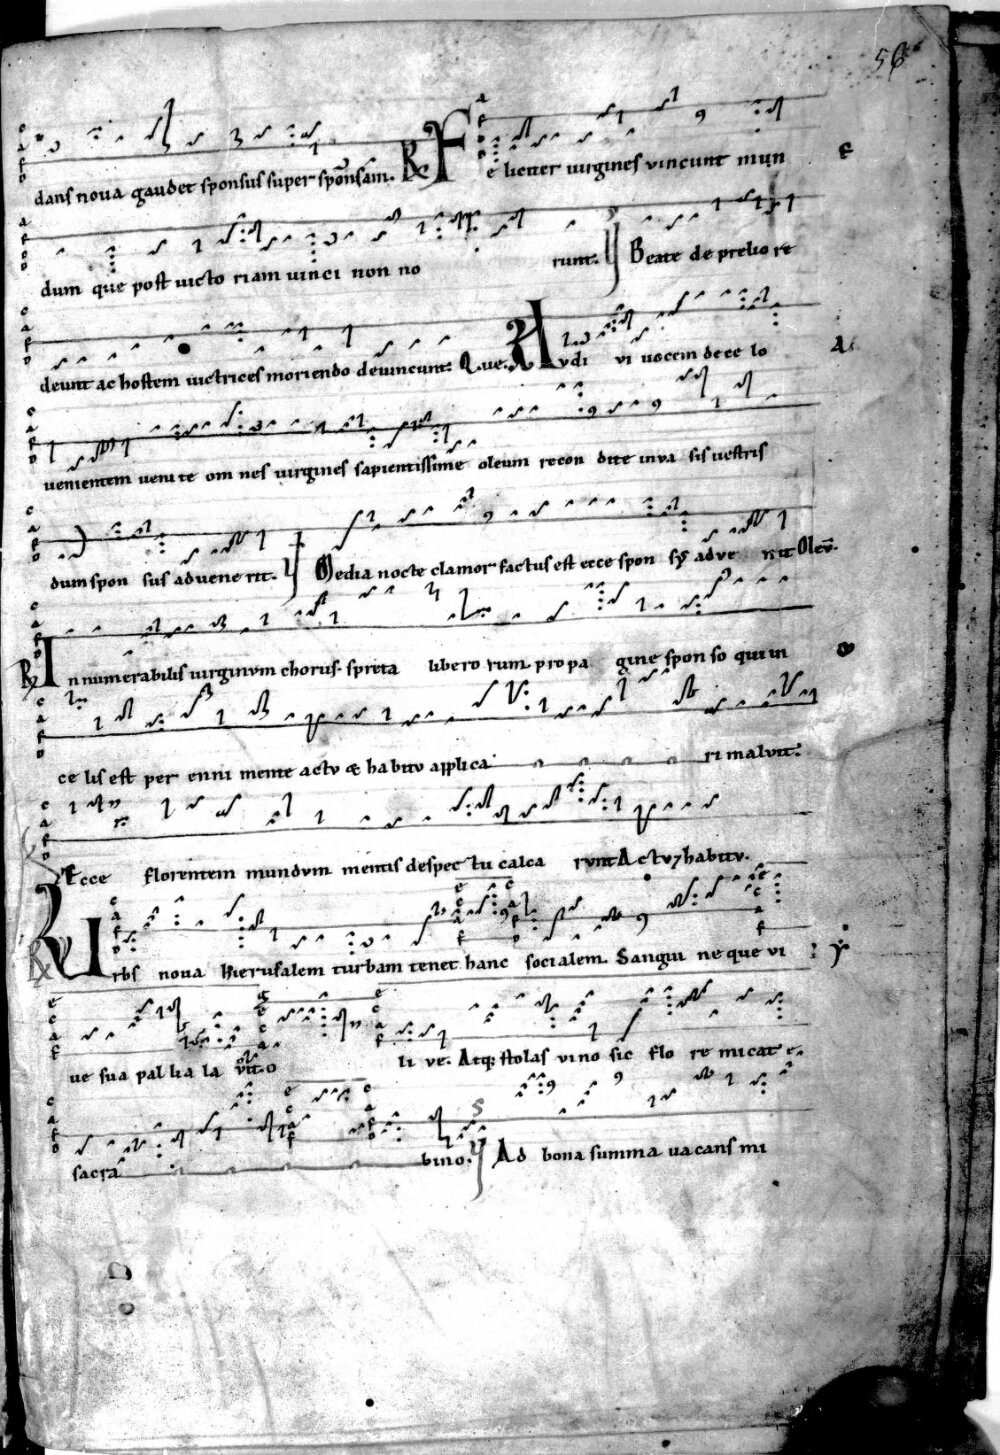 56
dans noua gaudet sponsus super sponsam. R Feliciter uirgines vincunt mun
dum que post uicto riam uinci non no runt. V Beate de prelio re
deunt ac hostem uictrices moriendo deuincunt. Que. R Avdi vi vocem de ce lo
uenientem ueni te om nes uirgines sapientissime oleum recon dite in va sis uestris
dum spon sus aduene rit. V Media nocte clamor factus est ecce spon sus adve nit Oleū.
R Innumerabilis uirginvm chorus. spreta libero rum propa gine spon so qui in
ce lis est per enni mente actv & habitv applica ri malvit.
V Ecce florentem mundvm mentis despec tu calca rvnt Actv 7 habitv.
R Urbs noua hierusalem turbam tenet hanc socialem. Sangui ne que vi
ue sua pal lia la vit. o li ve. Atq; stolas vino sic flo re micat e.
sacra bino. V Ad bona summa uacans mi